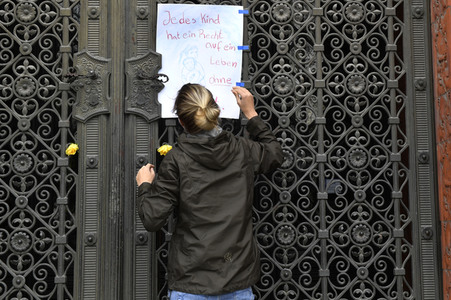 Jedes Kind
hat ein Recht
auf ein
Leben
ohne